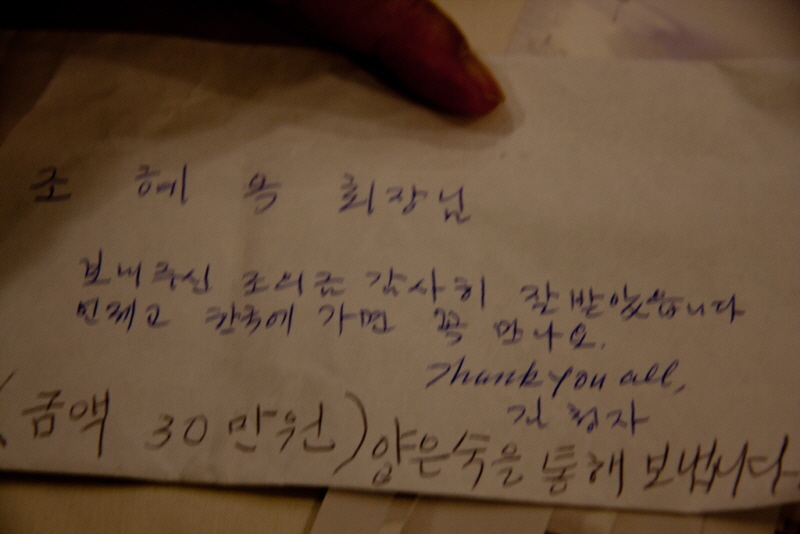 조 혜 옥 회장님
보내주신 조의금 감사히 잘 받았습니다
언제고 한국에 가면 꼭 만나요.
Thank you all,
김 정자
(금액 30만원) 양은숙을 통해 보냅니다.